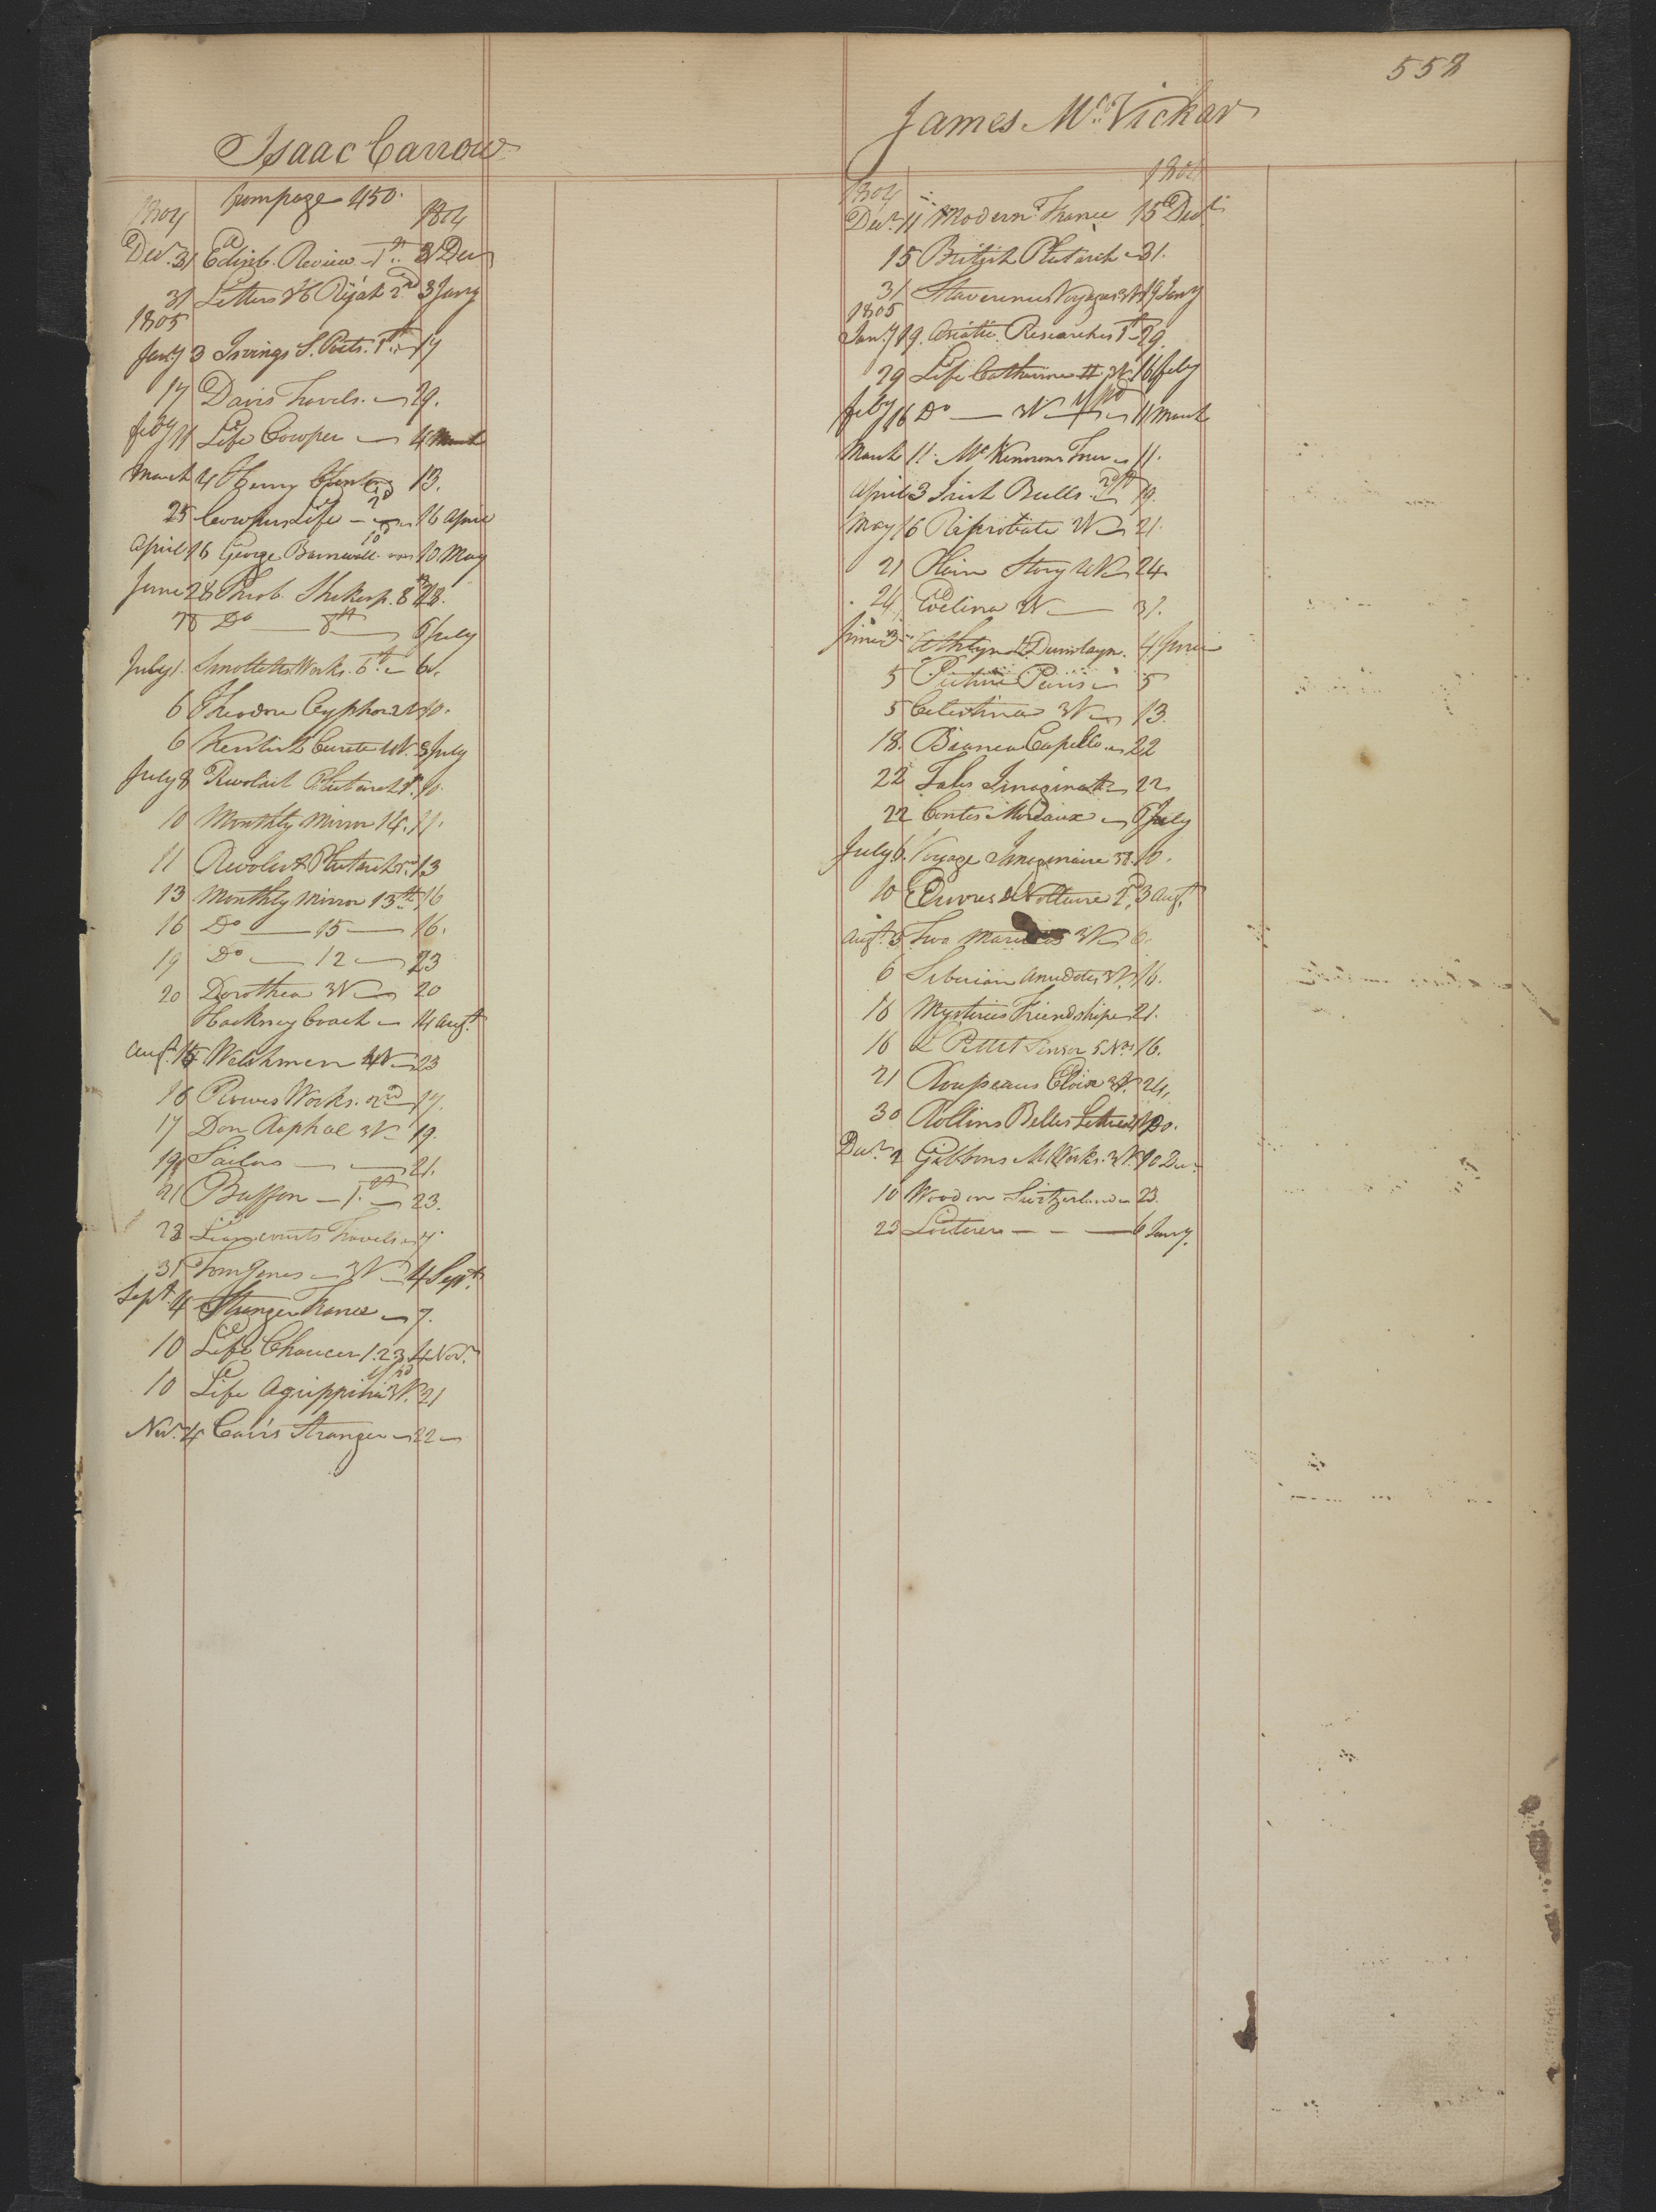 558
Isaac Carrow
from page 450.
1804 1804
Decr. 31 Edinb. Review 1st 31 Decr
31 Letters H Rajah 2nd 3 Jany
1805
Jany 3 Irvings S. Poets. 1st 17
17 Davis Travels. 29.
Feby 11 Life Cowper 4 March
March 4 Henry 13.
25 Cowpers Life 2d 16 April
April 16 George Barnwell 10 May
June 28 Shaksp. 8th 28.
28 Do 8th 6 July
July 1. Smolletts Works. 6th 6.
6 Theodore Cyphon 2V 10.
6 Kentish Curate 4V. 8 July
July 8 Revolut Plutarch 10.
10 Monthly Mirror 14. 11.
11 Revolut Plutarch 13
13 Monthly Mirror 13th 16
16 Do 15 16.
19 Do 12 23
20 Dorothea 3V 20
Hackney Coach 14 Augt.
Augt. 15 Welshmen 4V 23
16 Rowes Works. 2nd 17.
17 Don Raphael 3V 19.
19 Sailors 21.
21 Buffon 1st 23.
23 Liancourts Travels
31 Tom Jones 3V 4 Sept.
Sept. 4 Stranger France 7.
10 Life Chaucer 1.2.3. 4 Novr.
10 Life Agrippina 3V. 21
Novr. 4 Carr's Stranger 22
James McVickar
1804 1804
Decr. 11 Modern France 15 Decr.
15 British Plutarch 31.
31 Stavorinus Voyages 3V 19 Jany
1805
Jany 19. Asiatic Researches 1st 29.
29 Life Catherine II 3V. 16 Feby
Feby 16 Do 3V 11 March
March 11. McKinnons Tour 11.
April 3 Irish Bulls 19.
May 16 Reprobate 2V 21.
21 Plain Story 4V 24
24 Evelina 2V 31.
June 3 Athlyn & Dumbayn. 4 June
5 Picture Paris 5
5 Celestina 3V 13.
18. Bianca Capello 22
22 Tales Imaginat 22
22 Contes Moraux 6 July
July 6. Voyage Imaginaire 38. 10.
10 Œuvres de Voltaire 2d. 3 Augt.
Augt. 3 Two 3V 6.
6 Siberian Anecdotes 3V. 16.
16 Mysteries Friendship 21.
16 5 Nos 16.
21 Rousseaus Eloisa 3V. 24.
30 Rollins Belles Lettres 4V 30.
Decr. 2 Gibbons M. Works. 3V. 10 Decr.
10 Wood on Switzerland 23.
23 Loiterer 6 Jany.